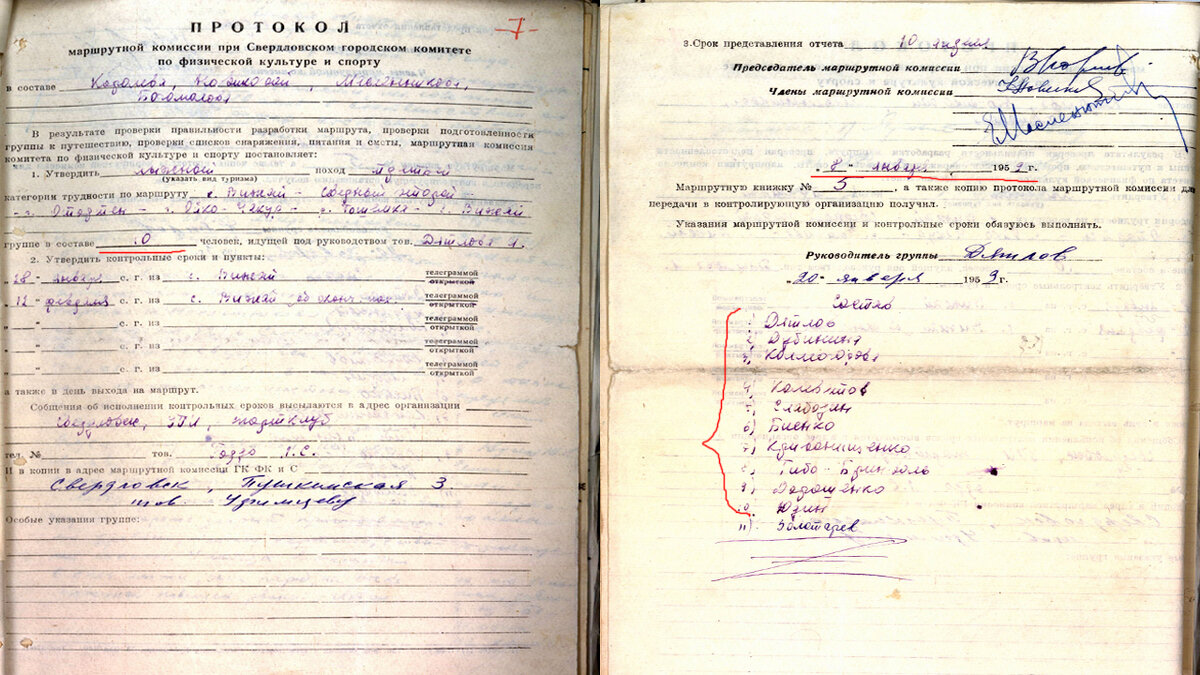 -7-
ПРОТОКОЛ
маршрутной комиссии при Свердловском городском комитете
по физической культуре и спорту
в составе Королева, Новиковой,
В результате проверки правильности разработки маршрута, проверки подготовленности
группы к путешествию, проверки списков снаряжения, питания и сметы, маршрутная комиссия
комитета по физической культуре и спорту постановляет:
1. Утвердить лыжный поход третьей
(указать вид туризма)
категории трудности по маршруту с. Вижай - второй -
- г. Отортен - г. Ойко-Чакур - р. Тошемка - с. Вижай
группе в составе 10 человек, идущей под руководством тов. Дятлова И.
2. Утвердить контрольные сроки и пункты:
„28" января с. г. из с. Вижай телеграммой
открыткой
„12" февраля с. г. из с. Вижай об оконч. телеграммой
открыткой
„ " с. г. из телеграммой
открыткой
„ " с. г. из телеграммой
открыткой
„ " с. г. из телеграммой
открыткой
а также в день выхода на маршрут.
Собщения об исполнении контрольных сроков высылаются в адрес организации
Свердловск, УПИ, спортклуб
тел. № тов. Гордо Л.С.
И в копии в адрес маршрутной комиссии ГК ФК и С
Свердловск, Пушкинская 3.
тов. Уфимцеву
Особые указания группе:
3. Срок представления отчета 10
Председатель маршрутной комиссии
Члены маршрутной комиссии Новикова
ЕМасленников
„8" января 1959 г.
Маршрутную книжку № 5, а также копию протокола маршрутной комиссии для
передачи в контролирующую организацию получил.
Указания маршрутной комиссии и контрольные сроки обязуюсь выполнять.
Руководитель группы Дятлов
„20" января 1959 г.
Состав
1) Дятлов
2) Дубинина
3) Колмогорова
4) Колеватов
5) Слободин
6) Биенко
7) Кривонищенко
8) Тибо-Бриньоль
9) Дорошенко
10. Юдин
11) Золотарев